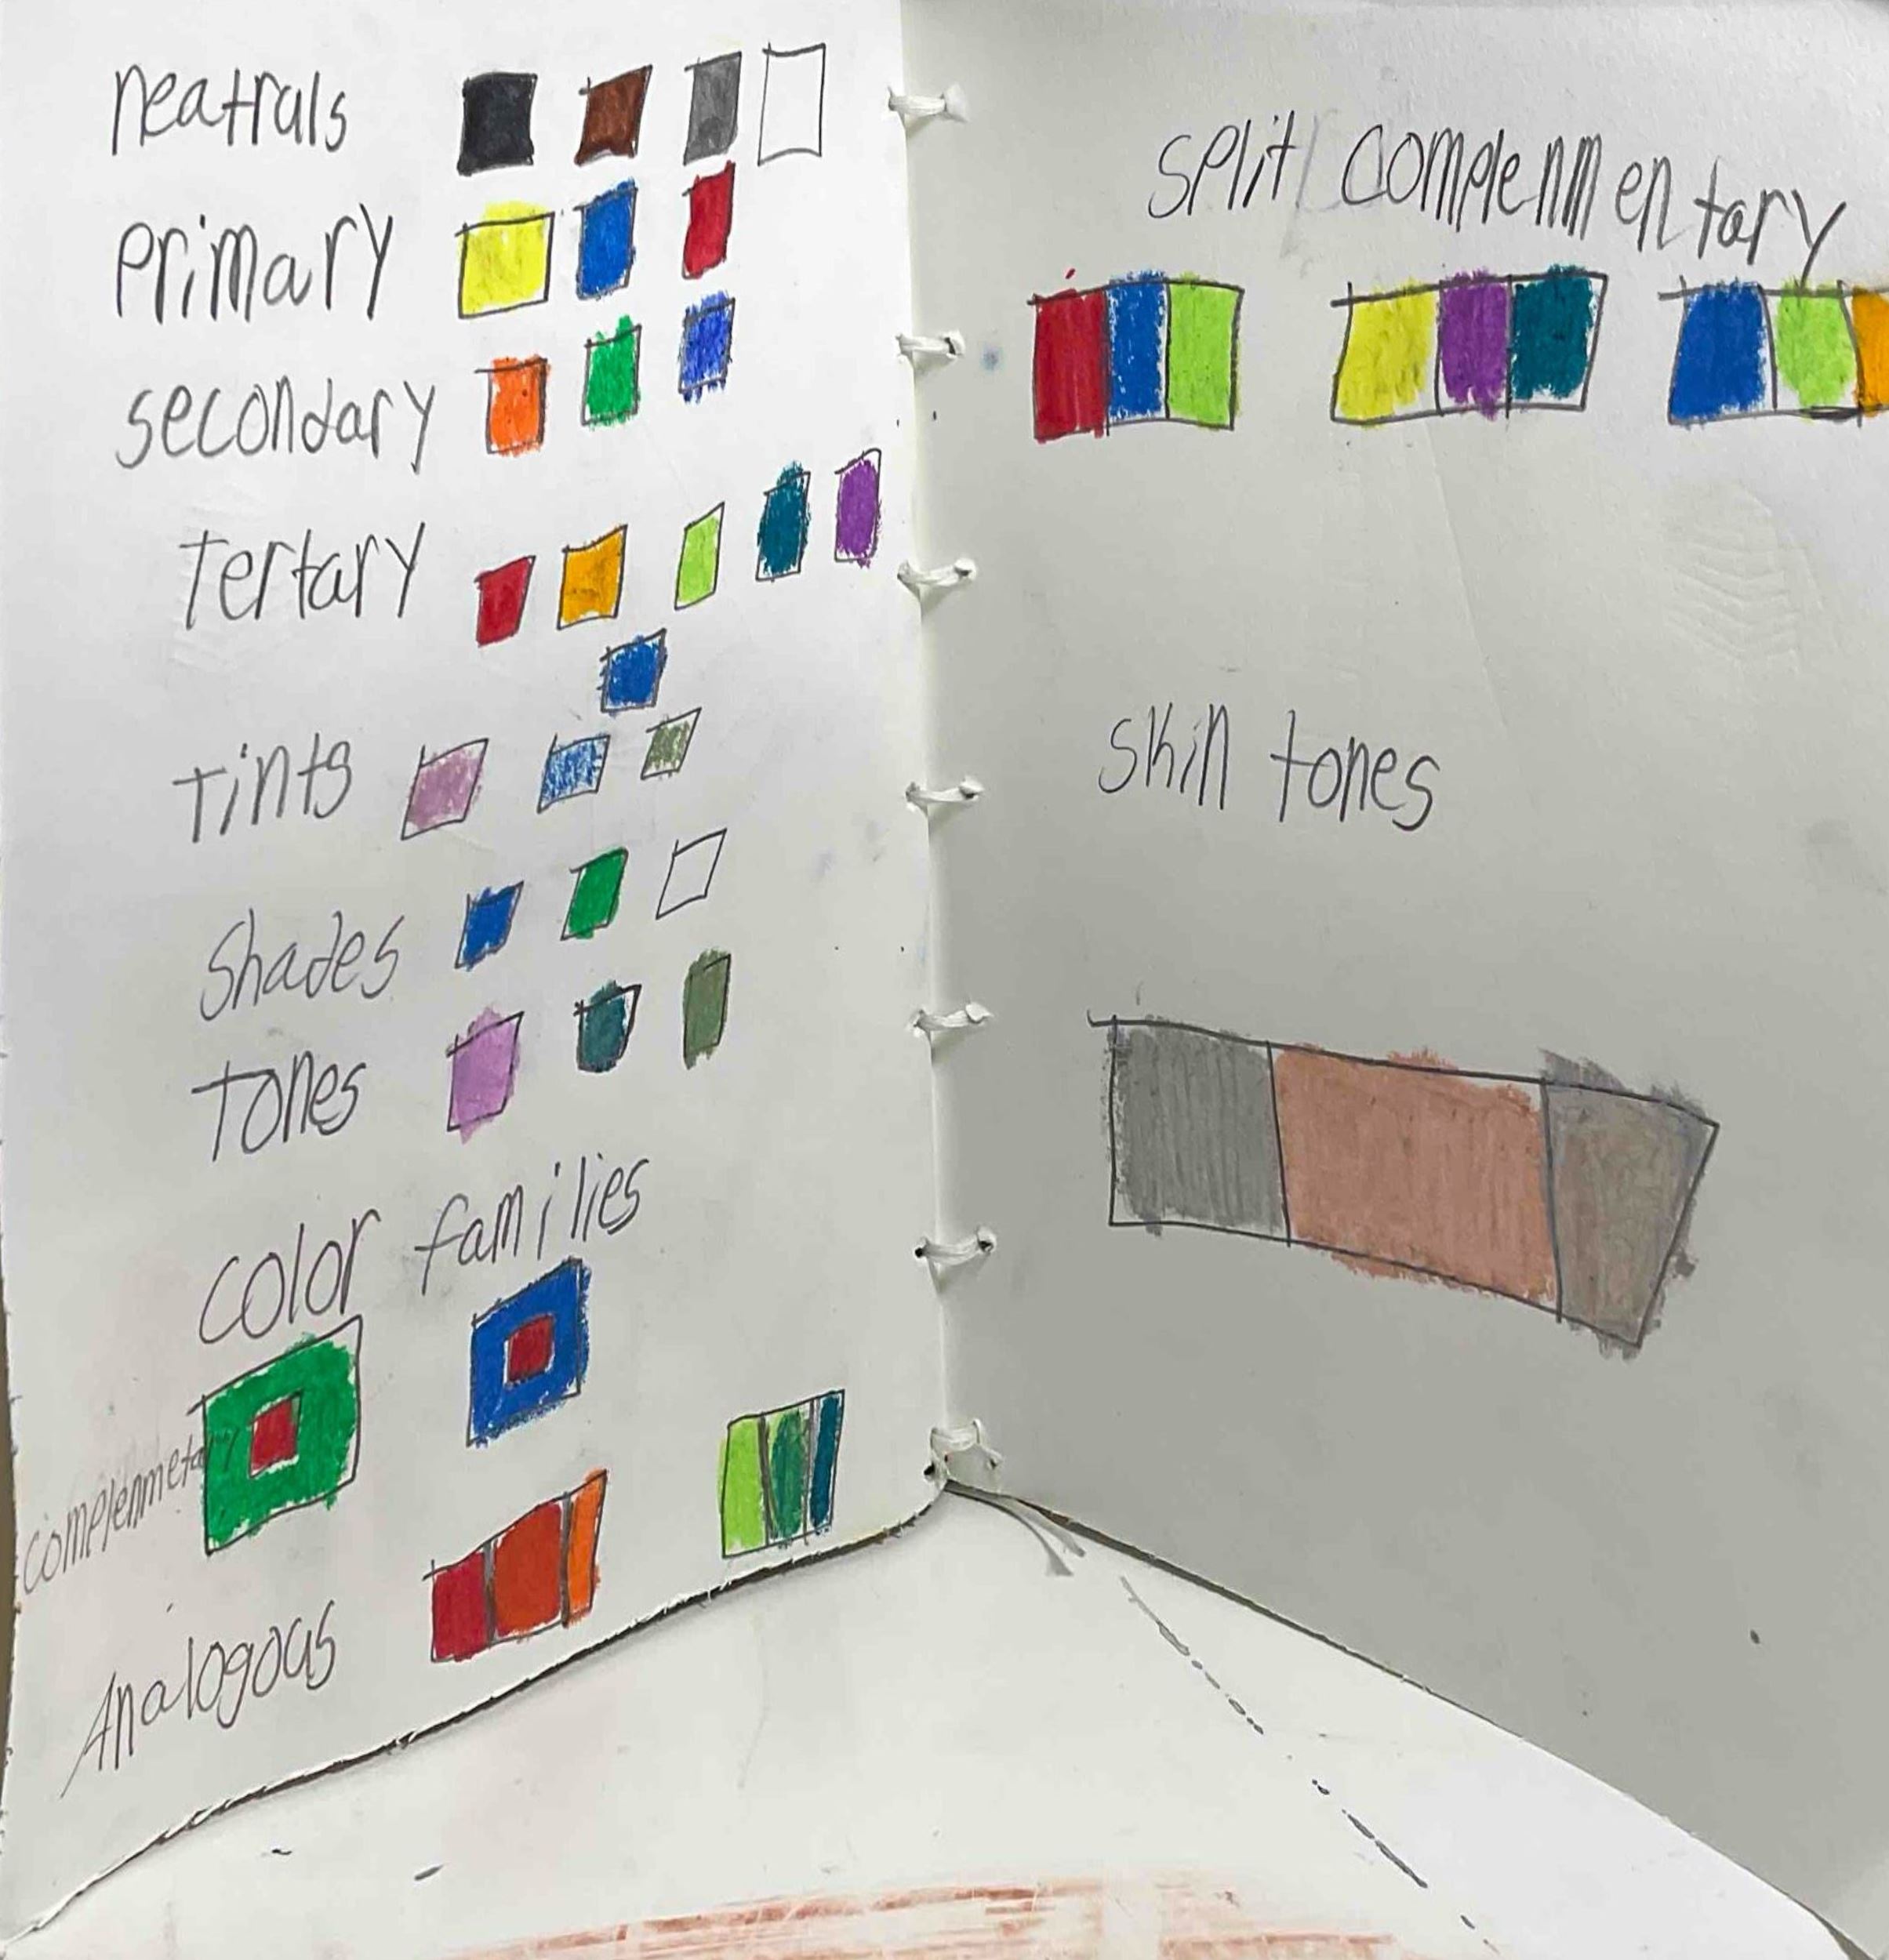 neatrals
primary
secondary
Tertary
Tints
Shades
Tones
color families
complenmetary
Analogous
split complenmentary
skin tones